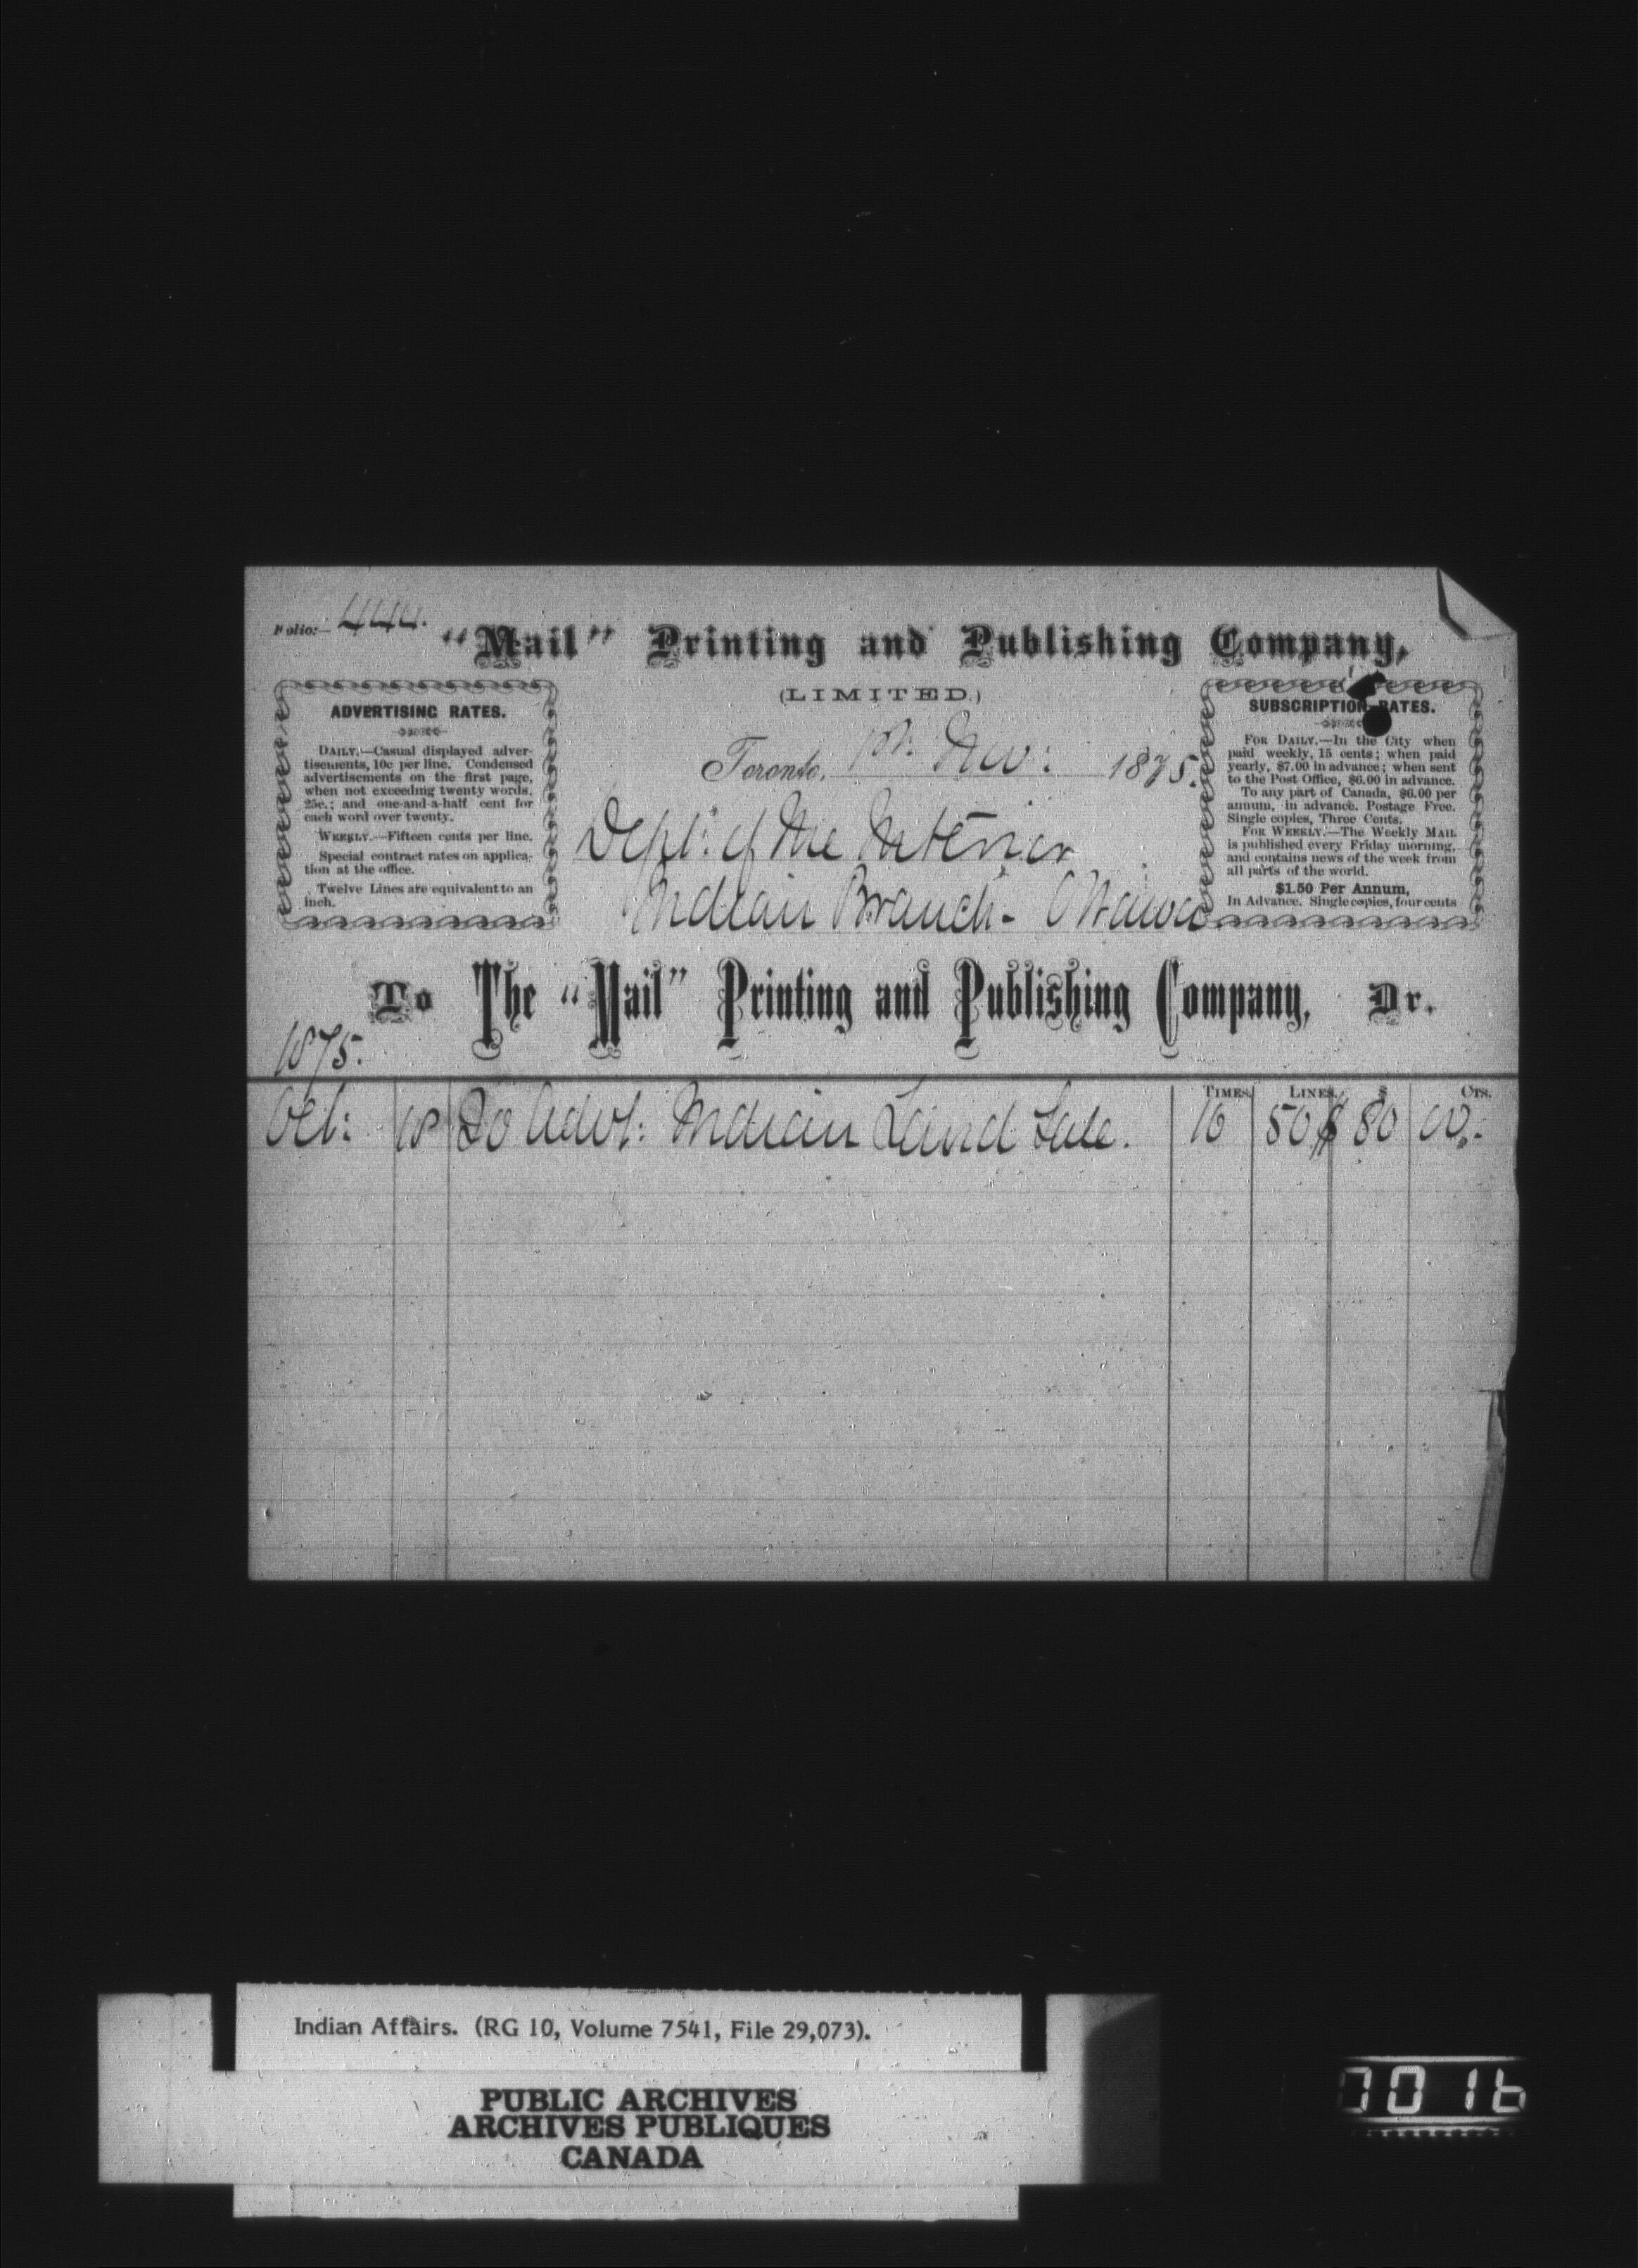 Folio:— 444.
"Mail" Printing and Publishing Company,
(LIMITED.)
ADVERTISING RATES.
DAILY.—Casual displayed adver-
tisements, 10c per line. Condensed
advertisements on the first page,
when not exceeding twenty words,
25c.; and one-and-a-half cent for
each word over twenty.
WEEKLY.—Fifteen cents per line.
Special contract rates on applica-
tion at the office.
Twelve Lines are equivalent to an
inch.
Toronto, Nov: 1875.
Dept: of the Interior
Indian Branch - Ottawa
SUBSCRIPTION RATES.
FOR DAILY.—In the City when
paid weekly, 15 cents; when paid
yearly, $7.00 in advance; when sent
to the Post Office, $6.00 in advance.
To any part of Canada, $6.00 per
annum, in advance. Postage Free.
Single copies, Three Cents.
FOR WEEKLY.—The Weekly MAIL
is published every Friday morning,
and contains news of the week from
all parts of the world.
$1.50 Per Annum,
In Advance. Single copies, four cents
To The "Mail" Printing and Publishing Company, Dr.
1875.
TIMES. LINES. $ CTS.
Oct: 18 To Advt: Indian Land Sale. 16 50 $ 80 00.
Indian Affairs. (RG 10, Volume 7541, File 29,073).
PUBLIC ARCHIVES
ARCHIVES PUBLIQUES
CANADA
0016